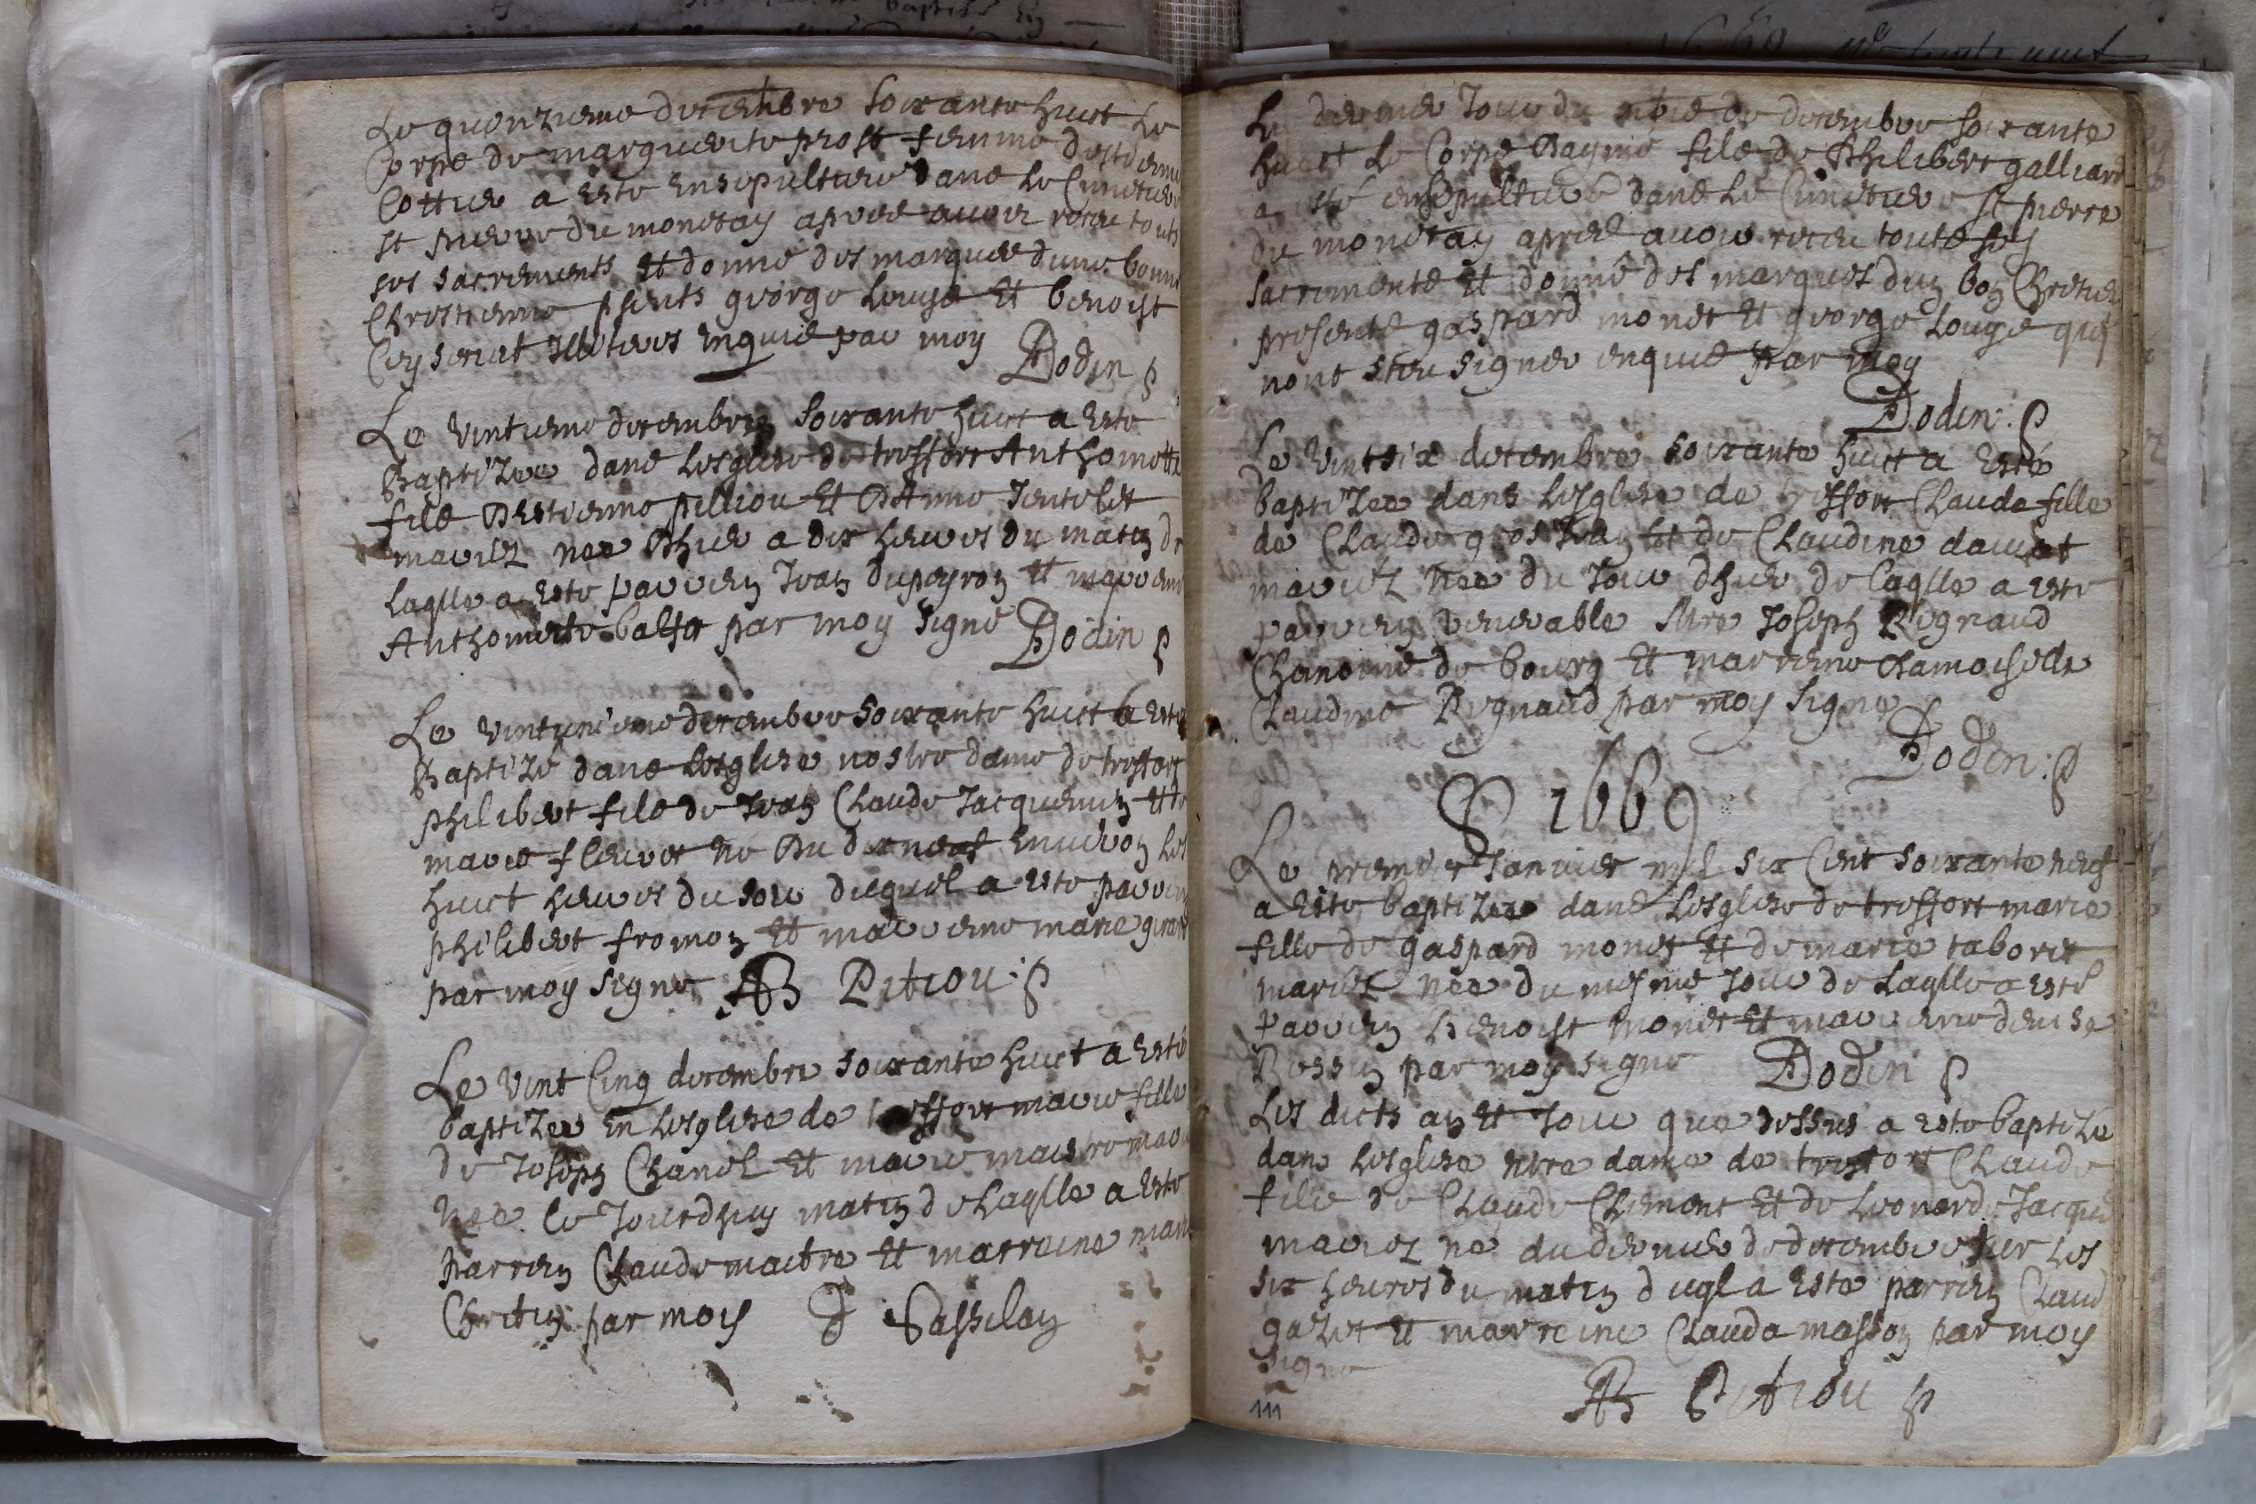 Le quinzieme decembre soixante huict le
Corps de marguerite prost femme destienne
Cottier a esté ensepulturé dans le Cimetiere
st pierre du monetay apres avoir receu touts
ses sacrements et donné des marques dune bonne
Chrestienne psents george Louys et benoist
illiteres enquis par moy
Dodin p
Le vintieme decembre soixante huict a esté
Baptizee dans lesglise de treffort Anthoinette
fille Destienne pilliou et D'Anne
mariez nee Dhier a dix heures du matin de
laqlle a esté parrein Jean dupeyron et marreine
Anthoinette par moy signé Dodin p
Le vintunieme decembre soixante huict a esté
Baptizé dans lesglise nostre dame de treffort
philibert fils de Jean Claude Jacquemin et de
marie fleuret né Du dixneuf environ les
huict heures du soir duquel a esté parrein
philibert fromon et marreine marie
par moy signé AB Pitiou p
Le vint Cinq decembre soixante huict a esté
baptizee En lesglise de treffort marie fille
de Joseph Chanel et marie maistre
nee le Jourdhuy matin de Laqlle a esté
parrein Claude maitre et marreine marie
Chritin par moy
Le dernier Jour du mois de decembre soixante
huict le Corps Daymé fils de Philibert galliard
a esté ensepulturé dans le Cimetiere st pierre
du monetay apres avoir receu touts ses
sacrements et donné des marques dun bon Chrestien
presents gaspard monet et george Louys qui
nont sceu signer enquis par moy
Dodin : p
Le vintsix decembre soixante huict a esté
baptizee dans lesglise de treffort Claude fille
de Claude grosJean et de Claudine
mariez nee du Jour dhier de laqlle a esté
parrein venerable Mre Joseph Regnaud
Chanoine de bourg et marreine damoiselle
Claudine Regnaud par moy signé
Dodin : p
1669
Le premier Janvier mil six Cent soixante neuf
a esté baptizee dans lesglise de treffort marie
fille de gaspard monet et de marie taboret
mariez nee du mesme Jour de laqlle a esté
parrein benoist monet et marreine denise
Rossin par moy signé Dodin p
Les dicts an et Jour que dessus a esté baptizé
dans lesglise ntre dame de treffort Claude
fils de Claude Clement et de Leonarde
mariez né du dernier de decembre sur les
six heures du matin duql a esté parrein Claude
gazet et marreine Clauda masson par moy
signé
AB Pitiou p
111